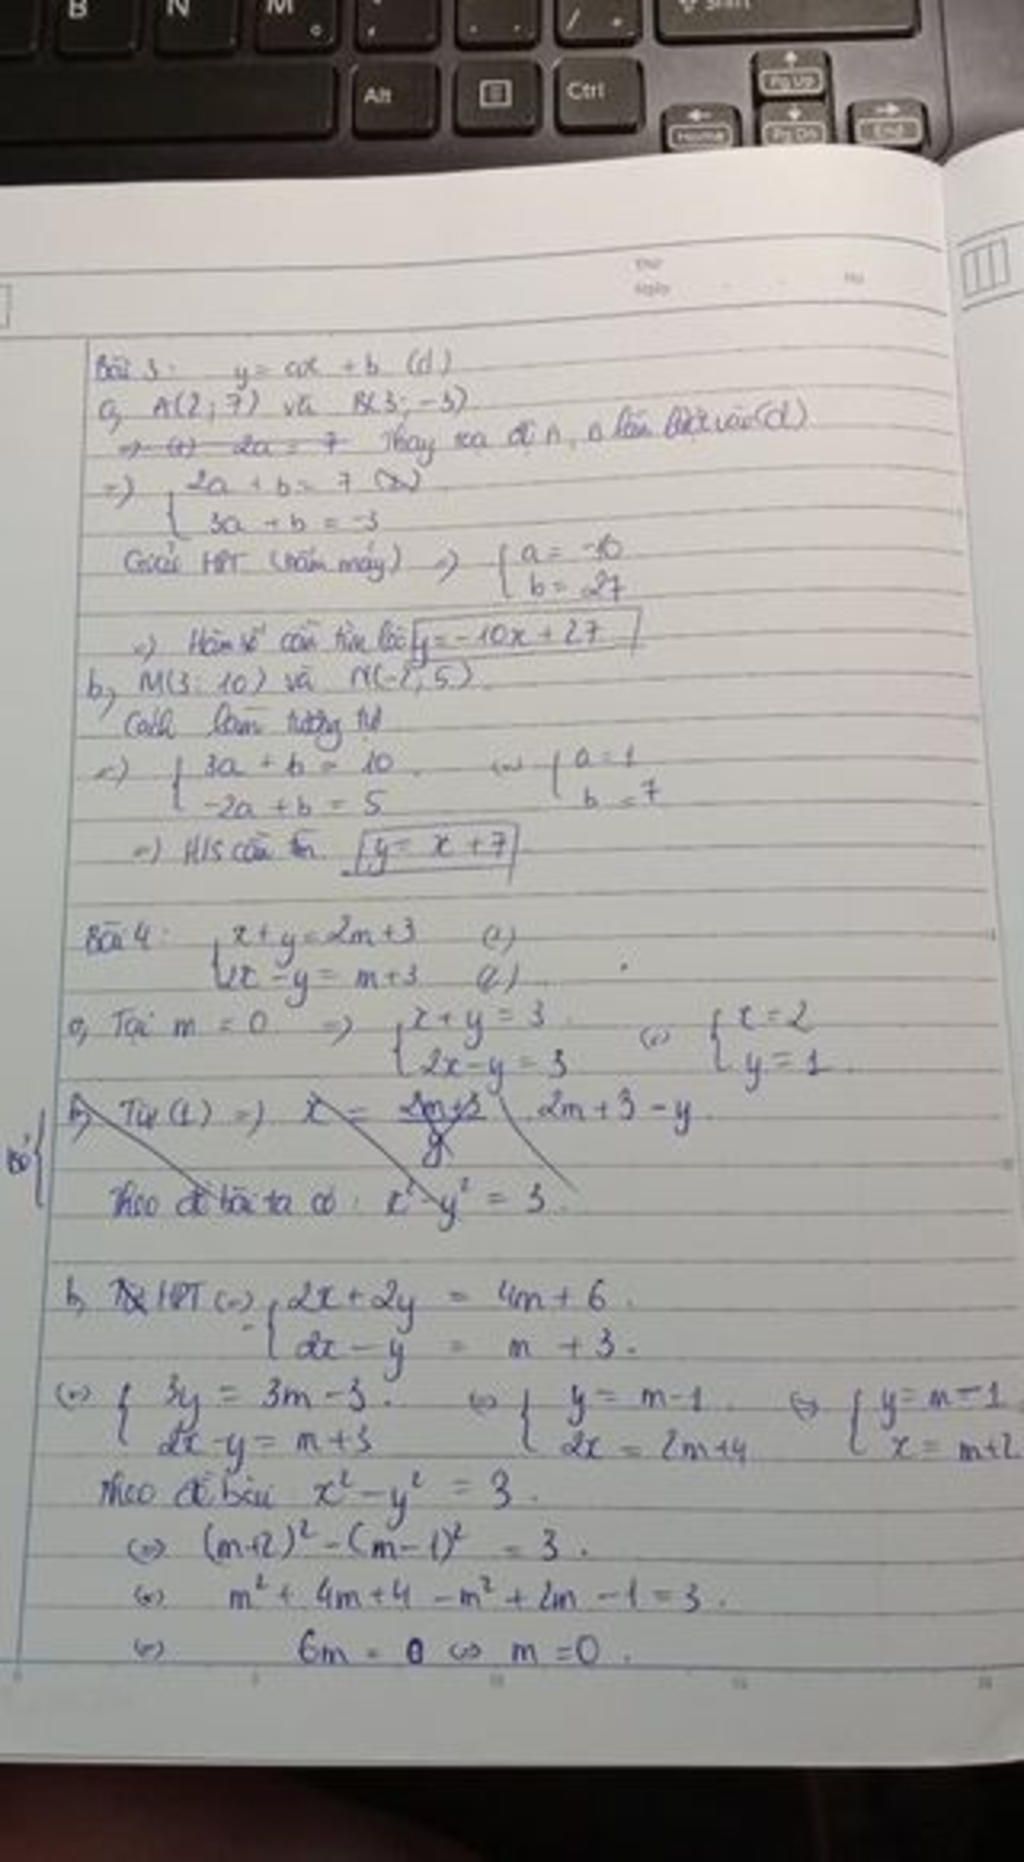 B N M
Alt Ctrl
Home Pg Up Pg Dn End
Thứ
Ngày
Bài 3: y = ax + b (d)
a, A(2; 7) và B(3; -3)
=> (1) 2a = 7 Thay toạ độ A, B lần lượt vào (d)
=> { 2a + b = 7
3a + b = -3
Giải HPT (bấm máy) => { a = -10
b = 27
=> Hàm số cần tìm là y = -10x + 27
b, M(3; 10) và N(-2; 5)
Cách làm tương tự
=> { 3a + b = 10 <=> { a = 1
-2a + b = 5 b = 7
=> H/S cần tìm y = x + 7
Bài 4: { x + y = 2m + 3 (1)
2x - y = m + 3 (2)
a, Tại m = 0 => { x + y = 3 <=> { x = 2
2x - y = 3 y = 1.
b, Từ (1) => x = 2m+3 2m + 3 - y.
y
Bỏ {
Theo đề bài ta có: x² - y² = 3.
b, HPT <=> { 2x + 2y = 4m + 6.
2x - y = m + 3.
<=> { 3y = 3m - 3. <=> { y = m - 1 <=> { y = m - 1
2x - y = m + 3 2x = 2m + 4 x = m + 2
Theo đề bài x² - y² = 3.
<=> (m+2)² - (m-1)² = 3.
<=> m² + 4m + 4 - m² + 2m - 1 = 3.
<=> 6m = 0 <=> m = 0.